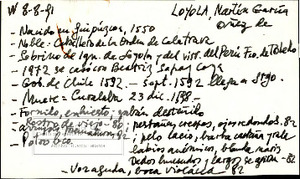 W 8-8-91 LOYOLA, Martín García Oñez de
- Nacido en Guipúzcoa, 1550
- Noble. Caballero de la Orden de Calatrava
- Sobrino de Ign. de Loyola y del virr. del Perú Fco. de Toledo
- 1972 se casó con Beatriz Sapai Coya
- Gob. de Chile 1592. — Sept. 1592 llega a Stgo.
- Muere = Curalaba 23 dic. 1598. —
- Fornido, enhiesto; gabán
- Rostro de vieja - 82; pestañas crespas, ojos redondos. 82
pelo lacio, barba castaña y rala
- Poloo Oco labios anémicos, blanda nariz
Dedos huesudos y largos se agitan - 82
- Voz aguda, boca violácea 82